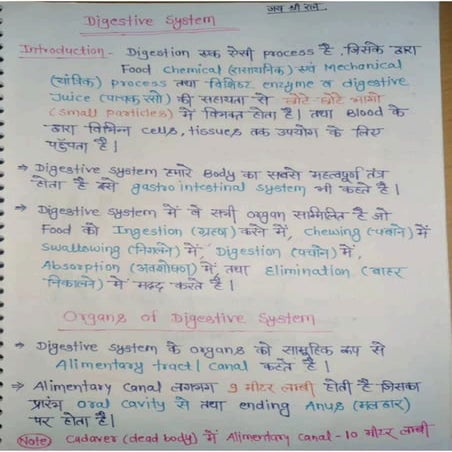 जय श्री राम
Digestive System
Introduction - Digestion एक ऐसी process है, जिसके द्वारा
Food Chemical (रासायनिक) एवं Mechanical
(यांत्रिक) process तथा विशिष्ट enzyme व digestive
Juice (पाचक रसो) की सहायता से छोटे-छोटे भागो
(small particles) में विभक्त होता है। तथा Blood के
द्वारा विभिन्न cells, tissues तक उपयोग के लिए
पहुँचता है।
→ Digestive system हमारे Body का सबसे महत्वपूर्ण तंत्र
होता है इसे gastro intestinal system भी कहते है।
→ Digestive system में वे सभी organ सम्मिलित है जो
Food को Ingestion (ग्रहण) करने में, Chewing (चबाने) में
Swallowing (निगलने) में, Digestion (पचाने) में,
Absorption (अवशोषण) में तथा Elimination (बाहर
निकालने) में मदद करते है।
Organs of Digestive System
→ Digestive system के organs को सामूहिक रूप से
Alimentary tract / canal कहते है।
→ Alimentary Canal लगभग 9 मीटर लम्बी होती है जिसका
प्रारंभ oral cavity से तथा ending Anus (मलद्वार)
पर होता है।
Note) Cadaver (dead body) में Alimentary canal - 10 मीटर लम्बी